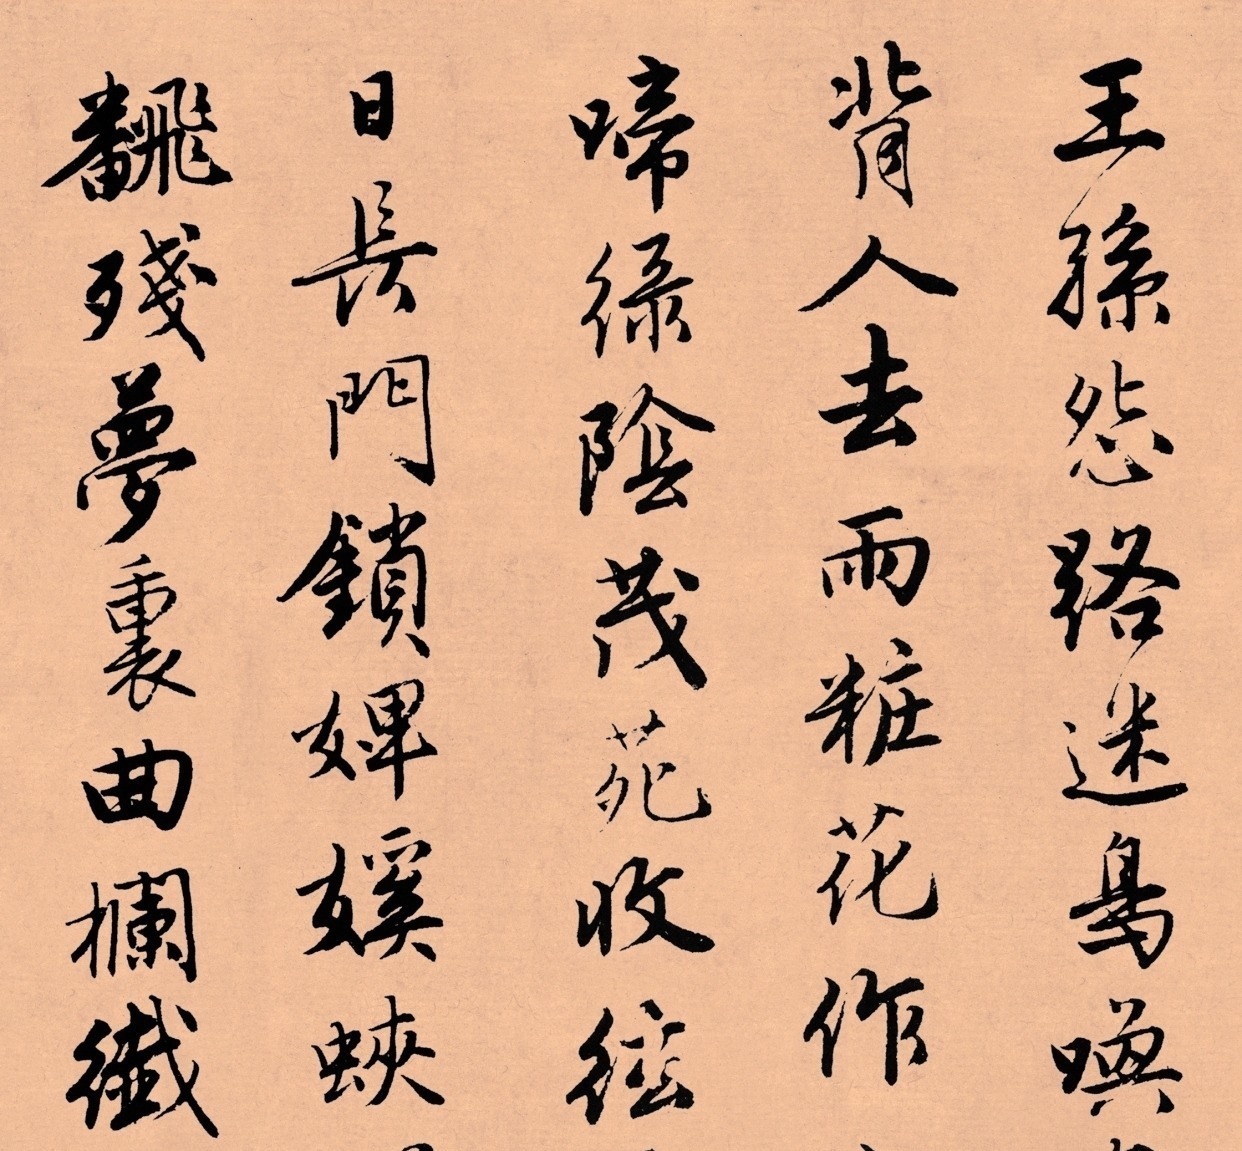 王孫怨路迷鳥喚
背人去雨粧花作
啼綠陰茂苑收絃
日長門鎖婢媛蛺
飜殘夢裏曲欄纖